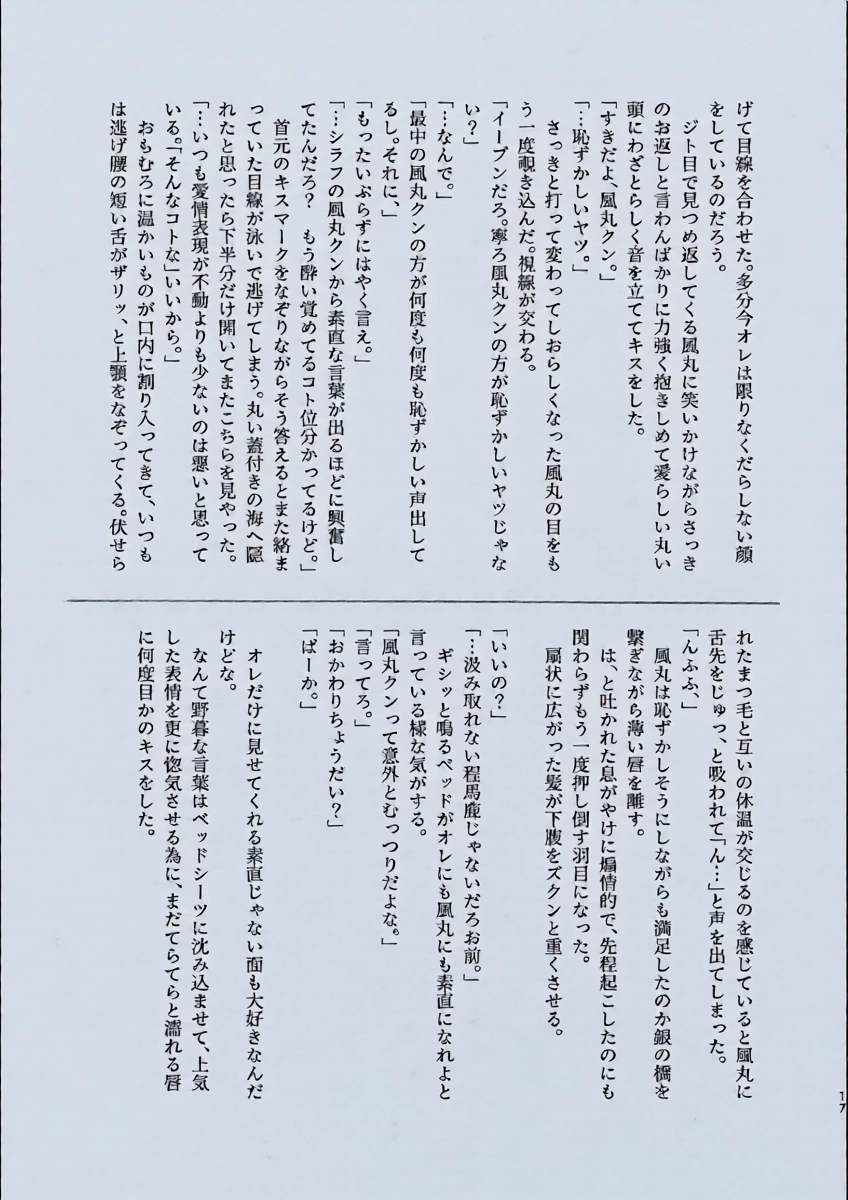 げて目線を合わせた。多分今オレは限りなくだらしない顔
をしているのだろう。
ジト目で見つめ返してくる風丸に笑いかけながらさっき
のお返しと言わんばかりに力強く抱きしめて愛らしい丸い
頭にわざとらしく音を立ててキスをした。
「すきだよ、風丸クン。」
「…恥ずかしいヤツ。」
さっきと打って変わってしおらしくなった風丸の目をも
う一度覗き込んだ。視線が交わる。
「イーブンだろ。寧ろ風丸クンの方が恥ずかしいヤツじゃな
い？」
「…なんで。」
「最中の風丸クンの方が何度も何度も恥ずかしい声出して
るし。それに、」
「もったいぶらずにはやく言え。」
「…シラフの風丸クンから素直な言葉が出るほどに興奮し
てたんだろ？　もう酔い覚めてるコト位分かってるけど。」
首元のキスマークをなぞりながらそう答えるとまた絡ま
っていた目線が泳いで逃げてしまう。丸い蓋付きの海へ隠
れたと思ったら下半分だけ開いてまたこちらを見やった。
「…いつも愛情表現が不動よりも少ないのは悪いと思って
いる。「そんなコトな」いいから。」
おもむろに温かいものが口内に割り入ってきて、いつも
は逃げ腰の短い舌がザリッ、と上顎をなぞってくる。伏せら
れたまつ毛と互いの体温が交じるのを感じていると風丸に
舌先をじゅっ、と吸われて「ん…」と声を出てしまった。
「んふふ、」
風丸は恥ずかしそうにしながらも満足したのか銀の橋を
繋ぎながら薄い唇を離す。
は、と吐かれた息がやけに煽情的で、先程起こしたのにも
関わらずもう一度押し倒す羽目になった。
扇状に広がった髪が下腹をズクンと重くさせる。
「いいの？」
「…汲み取れない程馬鹿じゃないだろお前。」
ギシッと鳴るベッドがオレにも風丸にも素直になれよと
言っている様な気がする。
「風丸クンって意外とむっつりだよな。」
「言ってろ。」
「おかわりちょうだい？」
「ばーか。」
オレだけに見せてくれる素直じゃない面も大好きなんだ
けどな。
なんて野暮な言葉はベッドシーツに沈み込ませて、上気
した表情を更に惚気させる為に、まだてらてらと濡れる唇
に何度目かのキスをした。
17